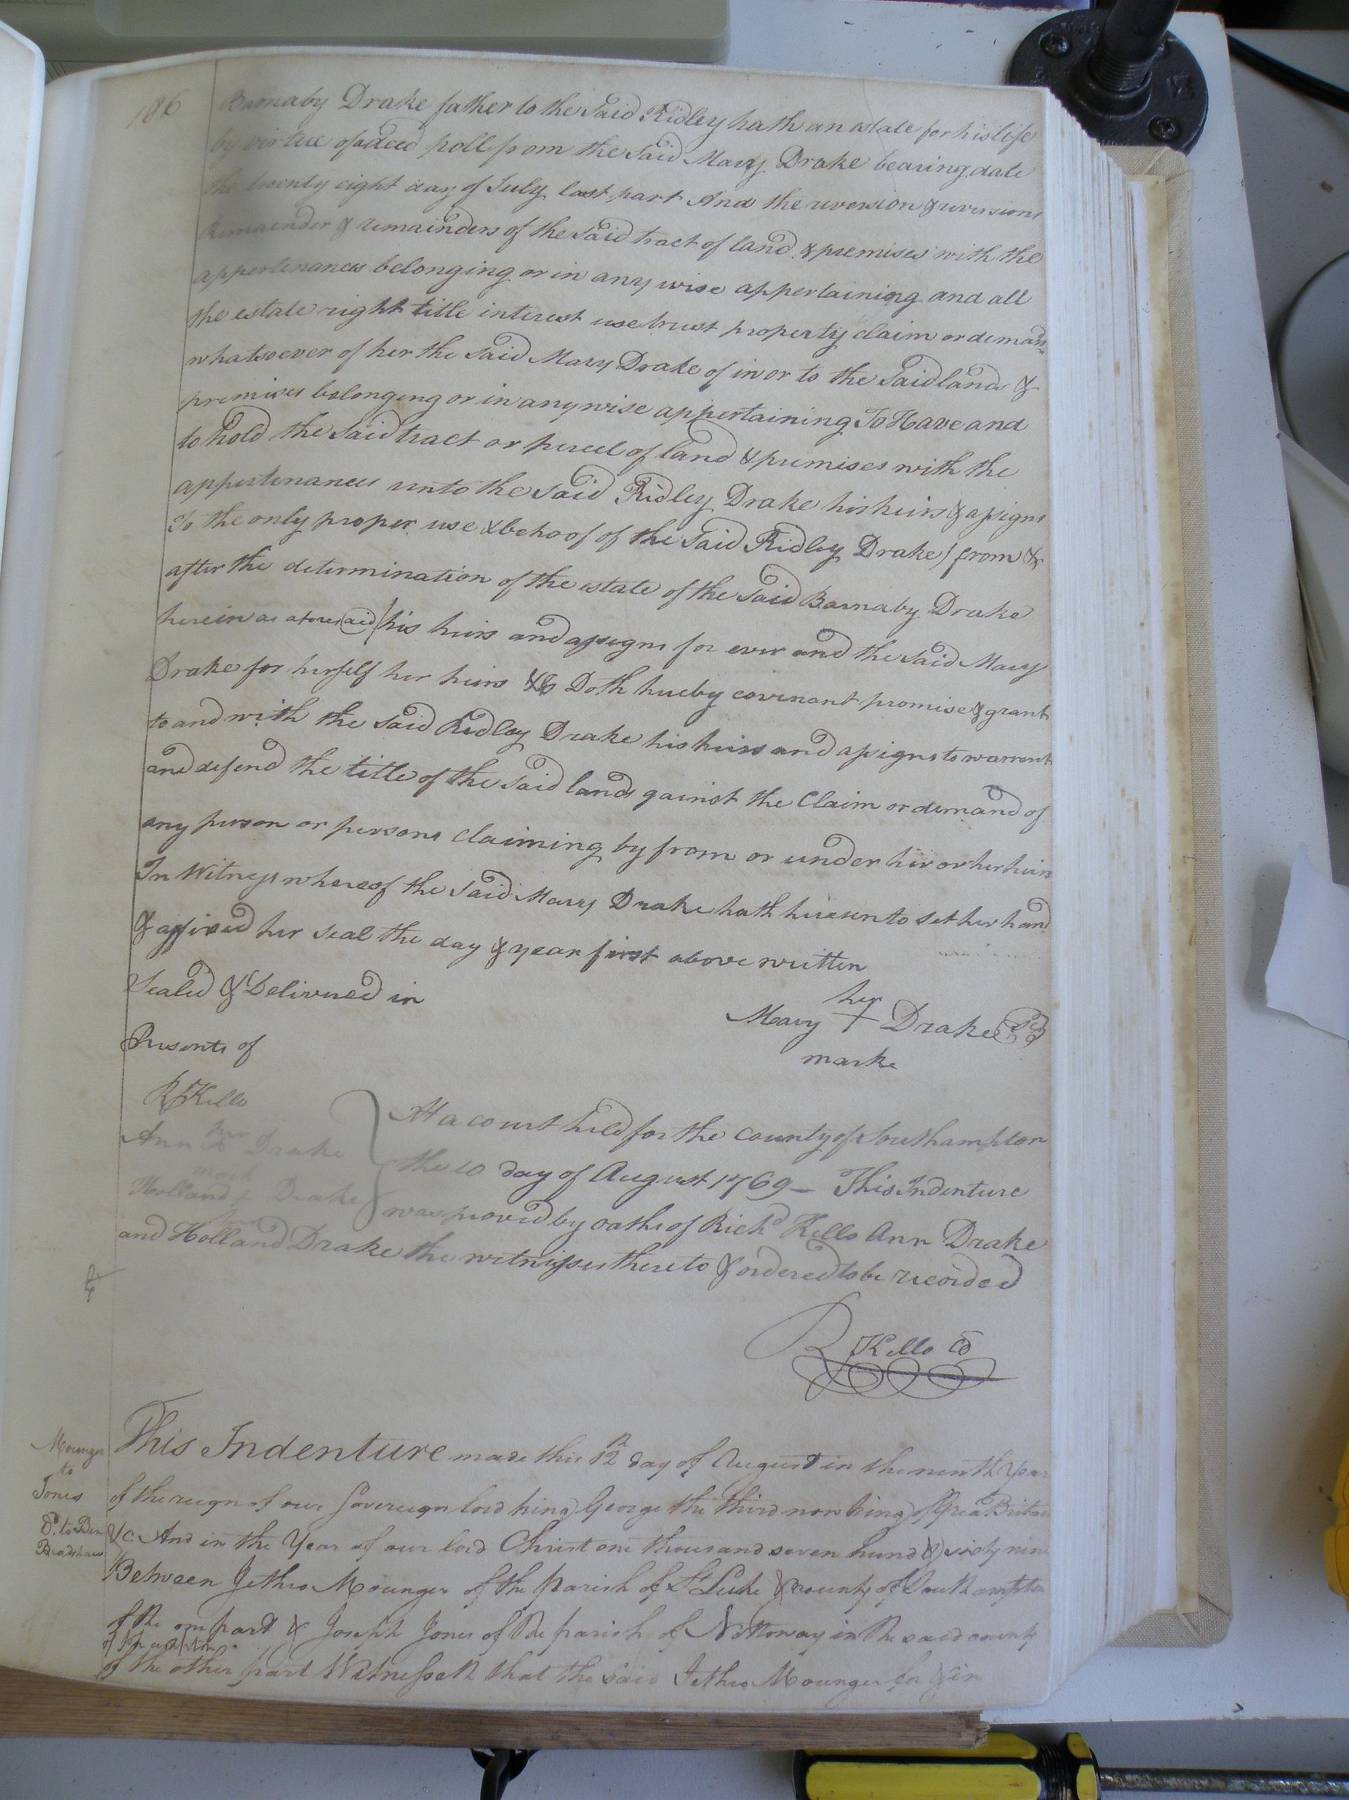 186
Barnaby Drake father to the said Ridley hath an estate for his life
by virtue of a deed poll from the said Mary Drake bearing date
the twenty eight day of July last part And the reversion & reversions
Remainder & remainders of the said tract of land & premises with the
appertenances belonging or in any wise appertaining and all
the estate right title interest use trust property claim or demand
whatsoever of her the said Mary Drake of in or to the said lands &
premises belonging or in anywise appertaining To Have and
to hold the said tract or percel of land & premises with the
appertenances unto the said Ridley Drake his heirs & assigns
To the only proper use & behoof of the said Ridley Drake (from &
after the determination of the estate of the said Barnaby Drake
herein as aforesaid) his heirs and assigns for ever and the said Mary
Drake for herself her heirs &c Doth hereby covenant promise & grant
to and with the said Ridley Drake his heirs and assigns to warrant
and defend the title of the said lands gainst the Claim or demand of
any person or persons claiming by from or under her or her heirs
In Witness whereof the said Mary Drake hath hereunto set her hand
& affixed her seal the day & year first above written
Sealed & Delivered in
Presents of
her
Mary + Drake
marke
R Kello
Ann Drake
mark
Holland Drake
At a court held for the county of Southampton
the 10 day of August 1769 — This Indenture
was proved by oaths of Richd Kello Ann Drake
and Holland Drake the witnesses thereto & ordered to be recorded
R Kello
Mounger
to
Jones
Do. to Ben
Bradshaw
This Indenture made this 12 day of August in the ninth Year
of the reign of our Sovereign lord king George the third now king of Great Britain
&c And in the Year of our lord Christ one thousand seven hund & sixty nine
Between Jethro Mounger of the parish of St Luke & county of Southampton
of the one part & Joseph Jones of the parish of Nottoway in the said county
of Southampton
of the other part Witnesseth that the said Jethro Mounger for & in